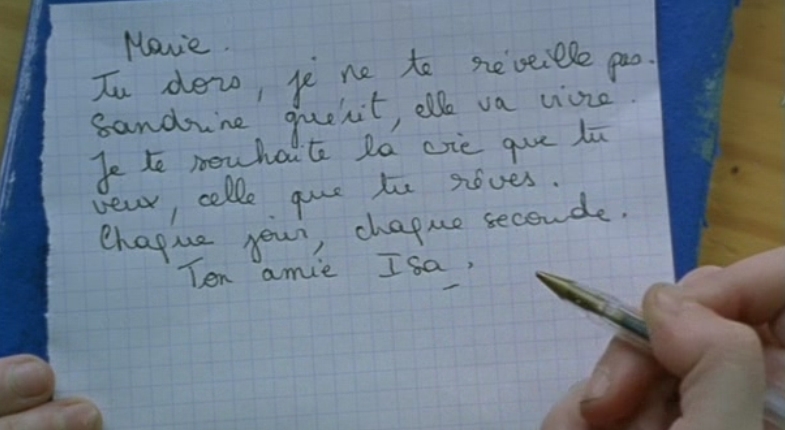 Marie.
Tu dors, je ne te réveille pas.
Sandrine guérit, elle va vivre.
Je te souhaite la vie que tu
veux, celle que tu rêves.
Chaque jour, chaque seconde.
Ton amie Isa.